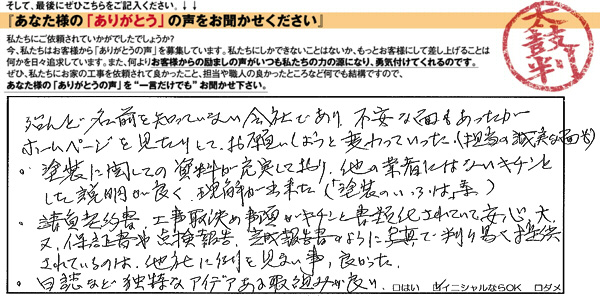 そして、最後にぜひこちらをご記入ください。↓↓
『あなた様の「ありがとう」の声をお聞かせください』
私たちにご依頼されていかがでしたでしょうか?
今、私たちはお客様から「ありがとうの声」を募集しています。私たちにしかできないことはないか、もっとお客様にして差し上げることは
何かを日々追求しています。また、何よりお客様からの励ましの声がいつも私たちの力の源になり、勇気付けてくれるのです。
ぜひ、私たちにお家の工事を依頼されて良かったこと、担当や職人の良かったところなど何でも結構ですので、
あなた様の「ありがとうの声」を“一言だけでも”お聞かせ下さい。
太鼓判
殆んど名前を知っていない会社であり、不安な面もあったが
ホームページを見たりして、お願いしようと変わっていった。(担当の誠実な面も)
・塗装に関しての資料が充実しており、他の業者にはないキチンと
した説明が良く、理解が出来た(「塗装のいろは」集)
・請負契約書、工事取決め事項がキチンと書類化されていて安心、大。
又、保証書や点検報告、完成報告書のように写真で判り易く提供
されているのは、他社に例を見ない事、良かった。
・日誌など独特なアイデアある取組みが良い。
□はい ☑イニシャルならOK □ダメ